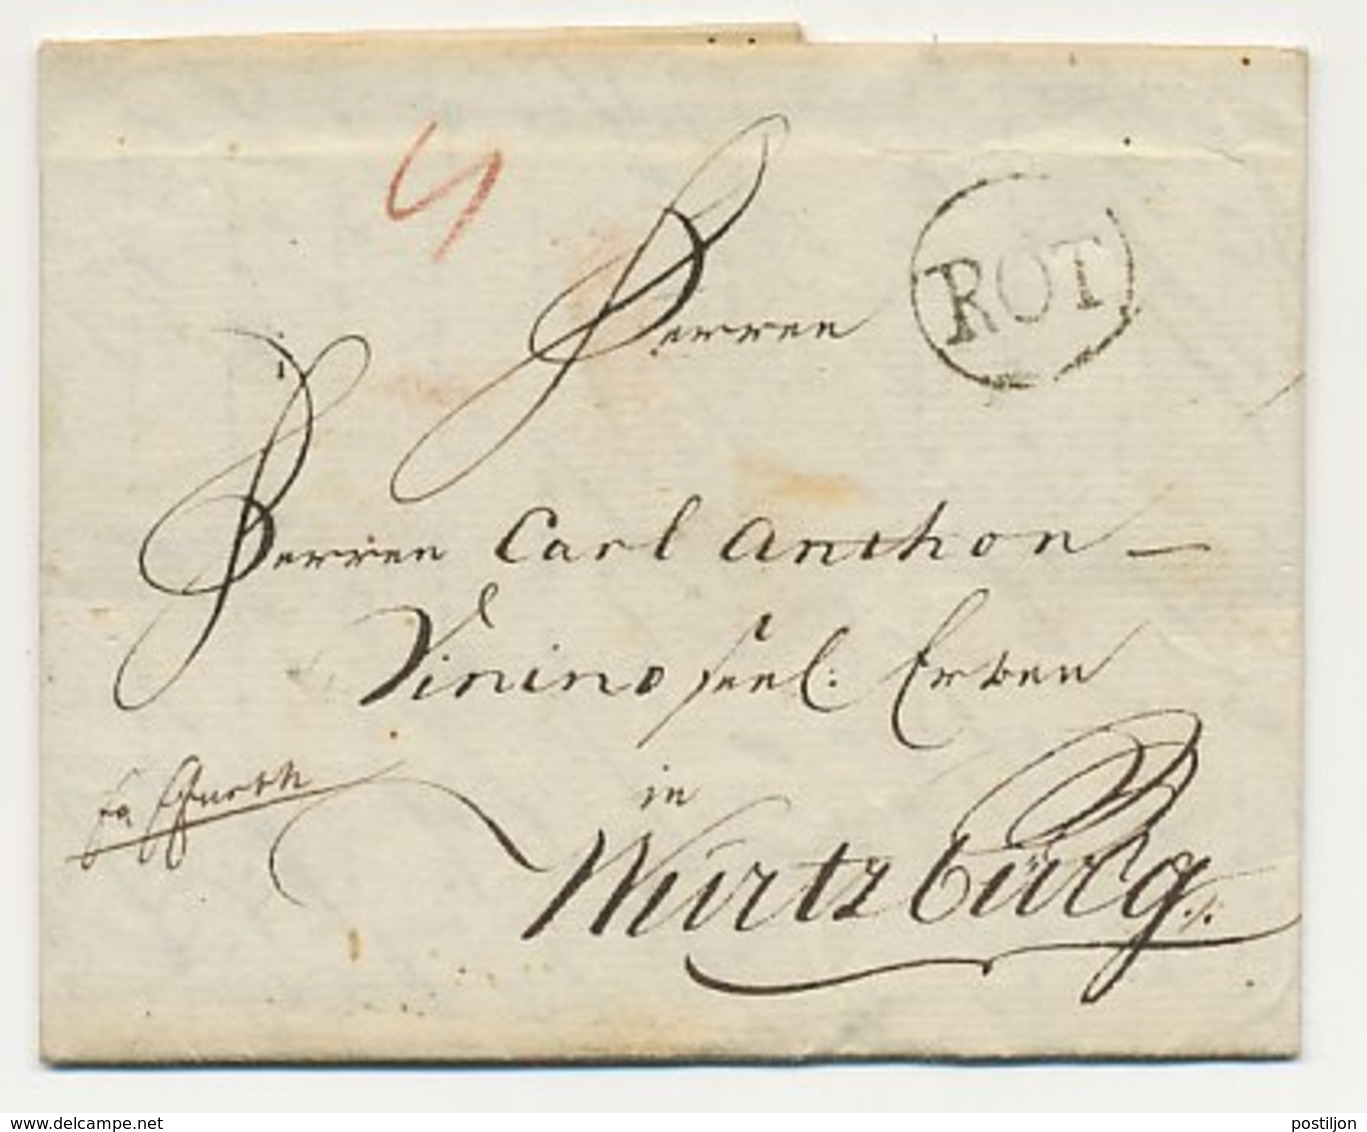 4
Herren
ROT
Herren Carl Anthon —
Vinino seel: Erben
in
fr ffurth
Würtzbürg
www.delcampe.net
postiljon